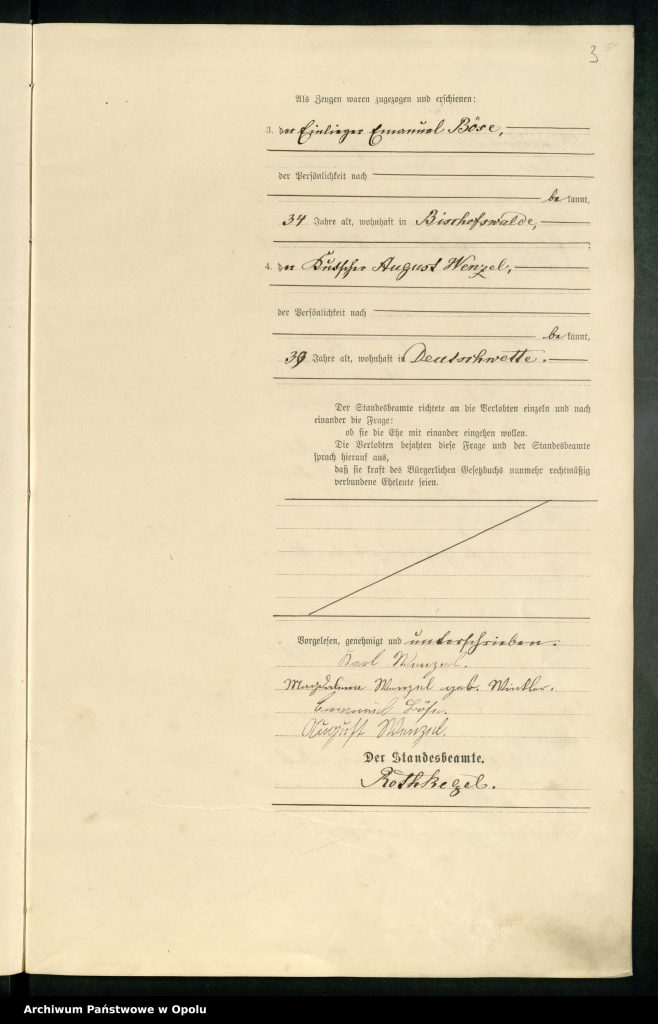 3
Als Zeugen waren zugezogen und erschienen:
3. der Einlieger Emanuel Böse,
der Persönlichkeit nach
be kannt,
34 Jahre alt, wohnhaft in Bischofswalde,
;
4. der Kutscher August Wenzel,
der Persönlichkeit nach
be kannt,
39 Jahre alt, wohnhaft in Deutschwette.
Der Standesbeamte richtete an die Verlobten einzeln und nach
einander die Frage:
ob sie die Ehe mit einander eingehen wollen.
Die Verlobten bejahten diese Frage und der Standesbeamte
sprach hierauf aus,
daß sie kraft des Bürgerlichen Gesetzbuchs nunmehr rechtmäßig
verbundene Eheleute seien.
Vorgelesen, genehmigt und unterschrieben.
Karl Wenzel.
Magdalena Wenzel geb. Winkler.
Emanuel Böse.
August Wenzel.
Der Standesbeamte.
Rothkegel.
Archiwum Państwowe w Opolu